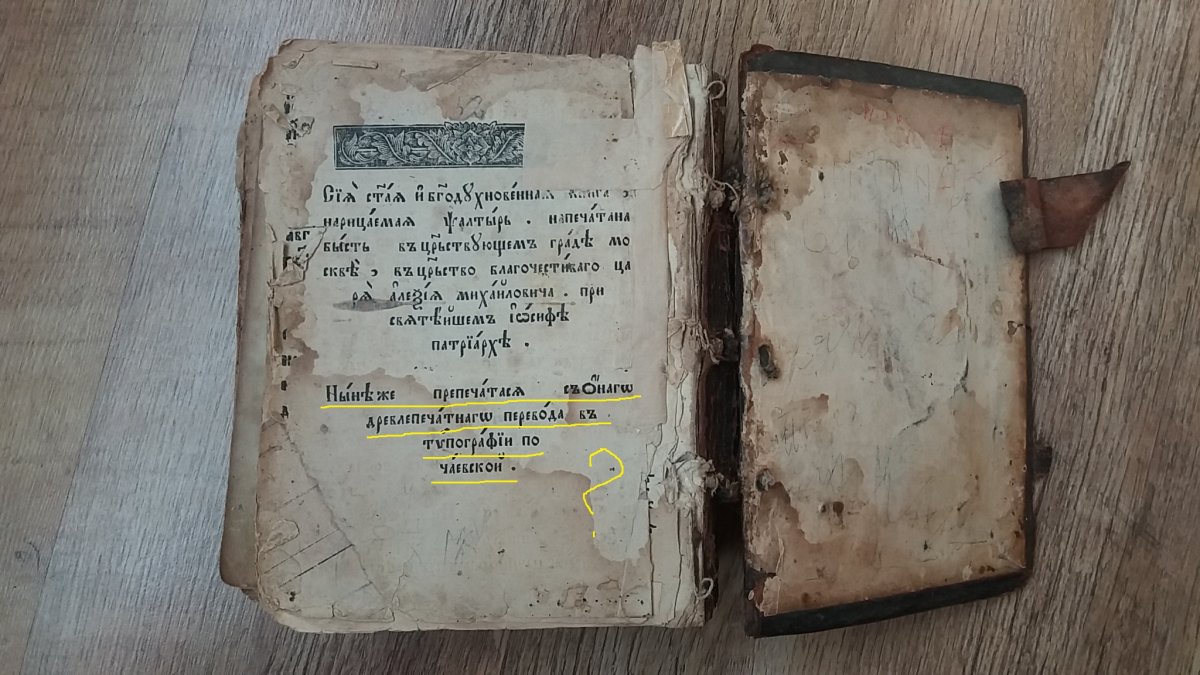 Сїѧ̀ ст҃аѧ и҆ бг҃одꙋхнове́ннаѧ книга
нарица́емаѧ ѱалты́рь . напеча́тана
бы́сть въ цр҃ьствꙋющемъ гра́дѣ мо
сквѣ̀ , въ цр҃ьство благочести́ваго ца
рѧ̀ а҆леѯі́ѧ миха́йловича . при
свѧтѣ́йшемъ і҆ѡ́сифѣ
патрїа́рхѣ .
Ны́нѣ же препеча́тасѧ съ ѻ҆́нагѡ
древлепеча́тнагѡ перево́да въ
тѷпогра́фїи по
ча́евской .
?
авг